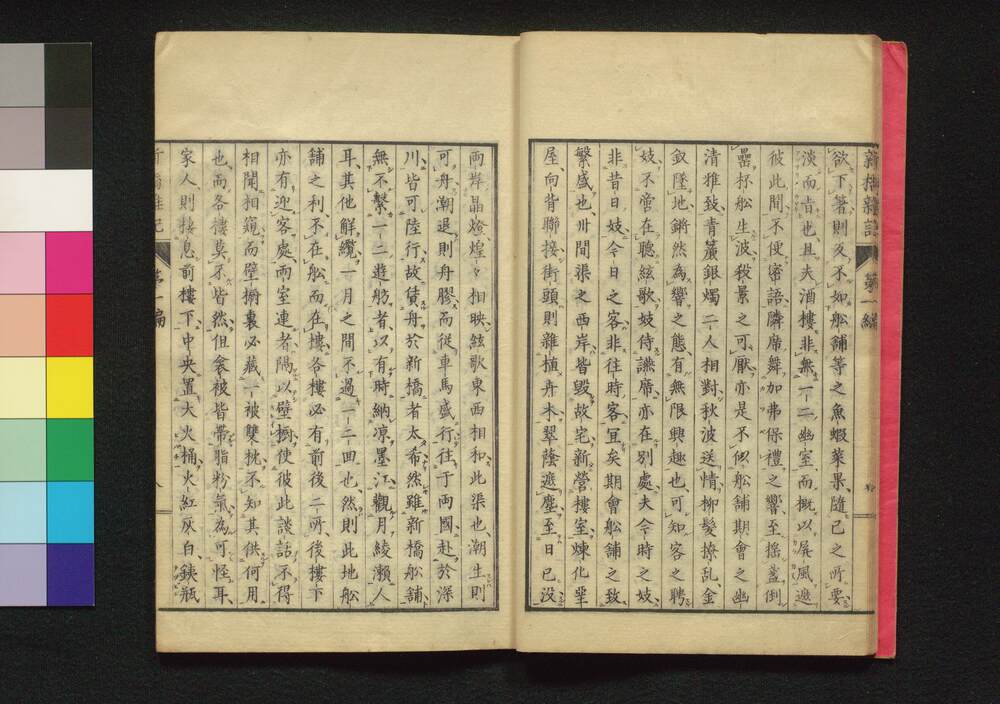 新橋雜記 第一編
欲下箸則反不如舩舗等之魚蝦菜果隨己之所要
淡而旨也且夫酒樓非無一二幽室而概以屏風遮
彼此間不便密語隣席舞加弗保禮之響至搖盞倒
罍杯舩生波殺景之可厭亦是不似舩舗期會之幽
清雅致青簾銀燭二人相對秋波送情柳髮撩乱金
釵墜地鏘然為響之態有無限興趣也可知客之聘
妓不啻在聴絃歌妓侍讌席亦在別處夫今時之妓
非昔日妓今日之客非往時客冝矣期會舩舗之致
繁盛也卅間渠之西岸皆毀故宅新營樓室煉化
屋向背聯接街頭則雜植卉木翠蔭遮塵至日已没
両岸晶燈煌々相映絃歌東西相和此渠也潮生則
可舟潮退則舟膠而従車馬盛行往于両國赴於深
川皆可陸行故賃舟於新橋者太希然雖新橋舩舗
無不繫一二遊舫者以有時納凉墨江觀月綾瀬人
耳其他觧纜一月之間不過一二回也然則此地舩
舗之利不在舩而在樓各樓必有前後二所後樓下
亦有迎客處両室連者隔以壁櫥使彼此談話不得
相聞相窺而壁櫥裏必藏一被雙枕不知其供何用
也而各樓莫不皆然但衾被皆帶脂粉氣為可怪耳
家人則棲息前樓下中央置大火桶火紅灰白銕瓶
新橋雜記 第一編 八